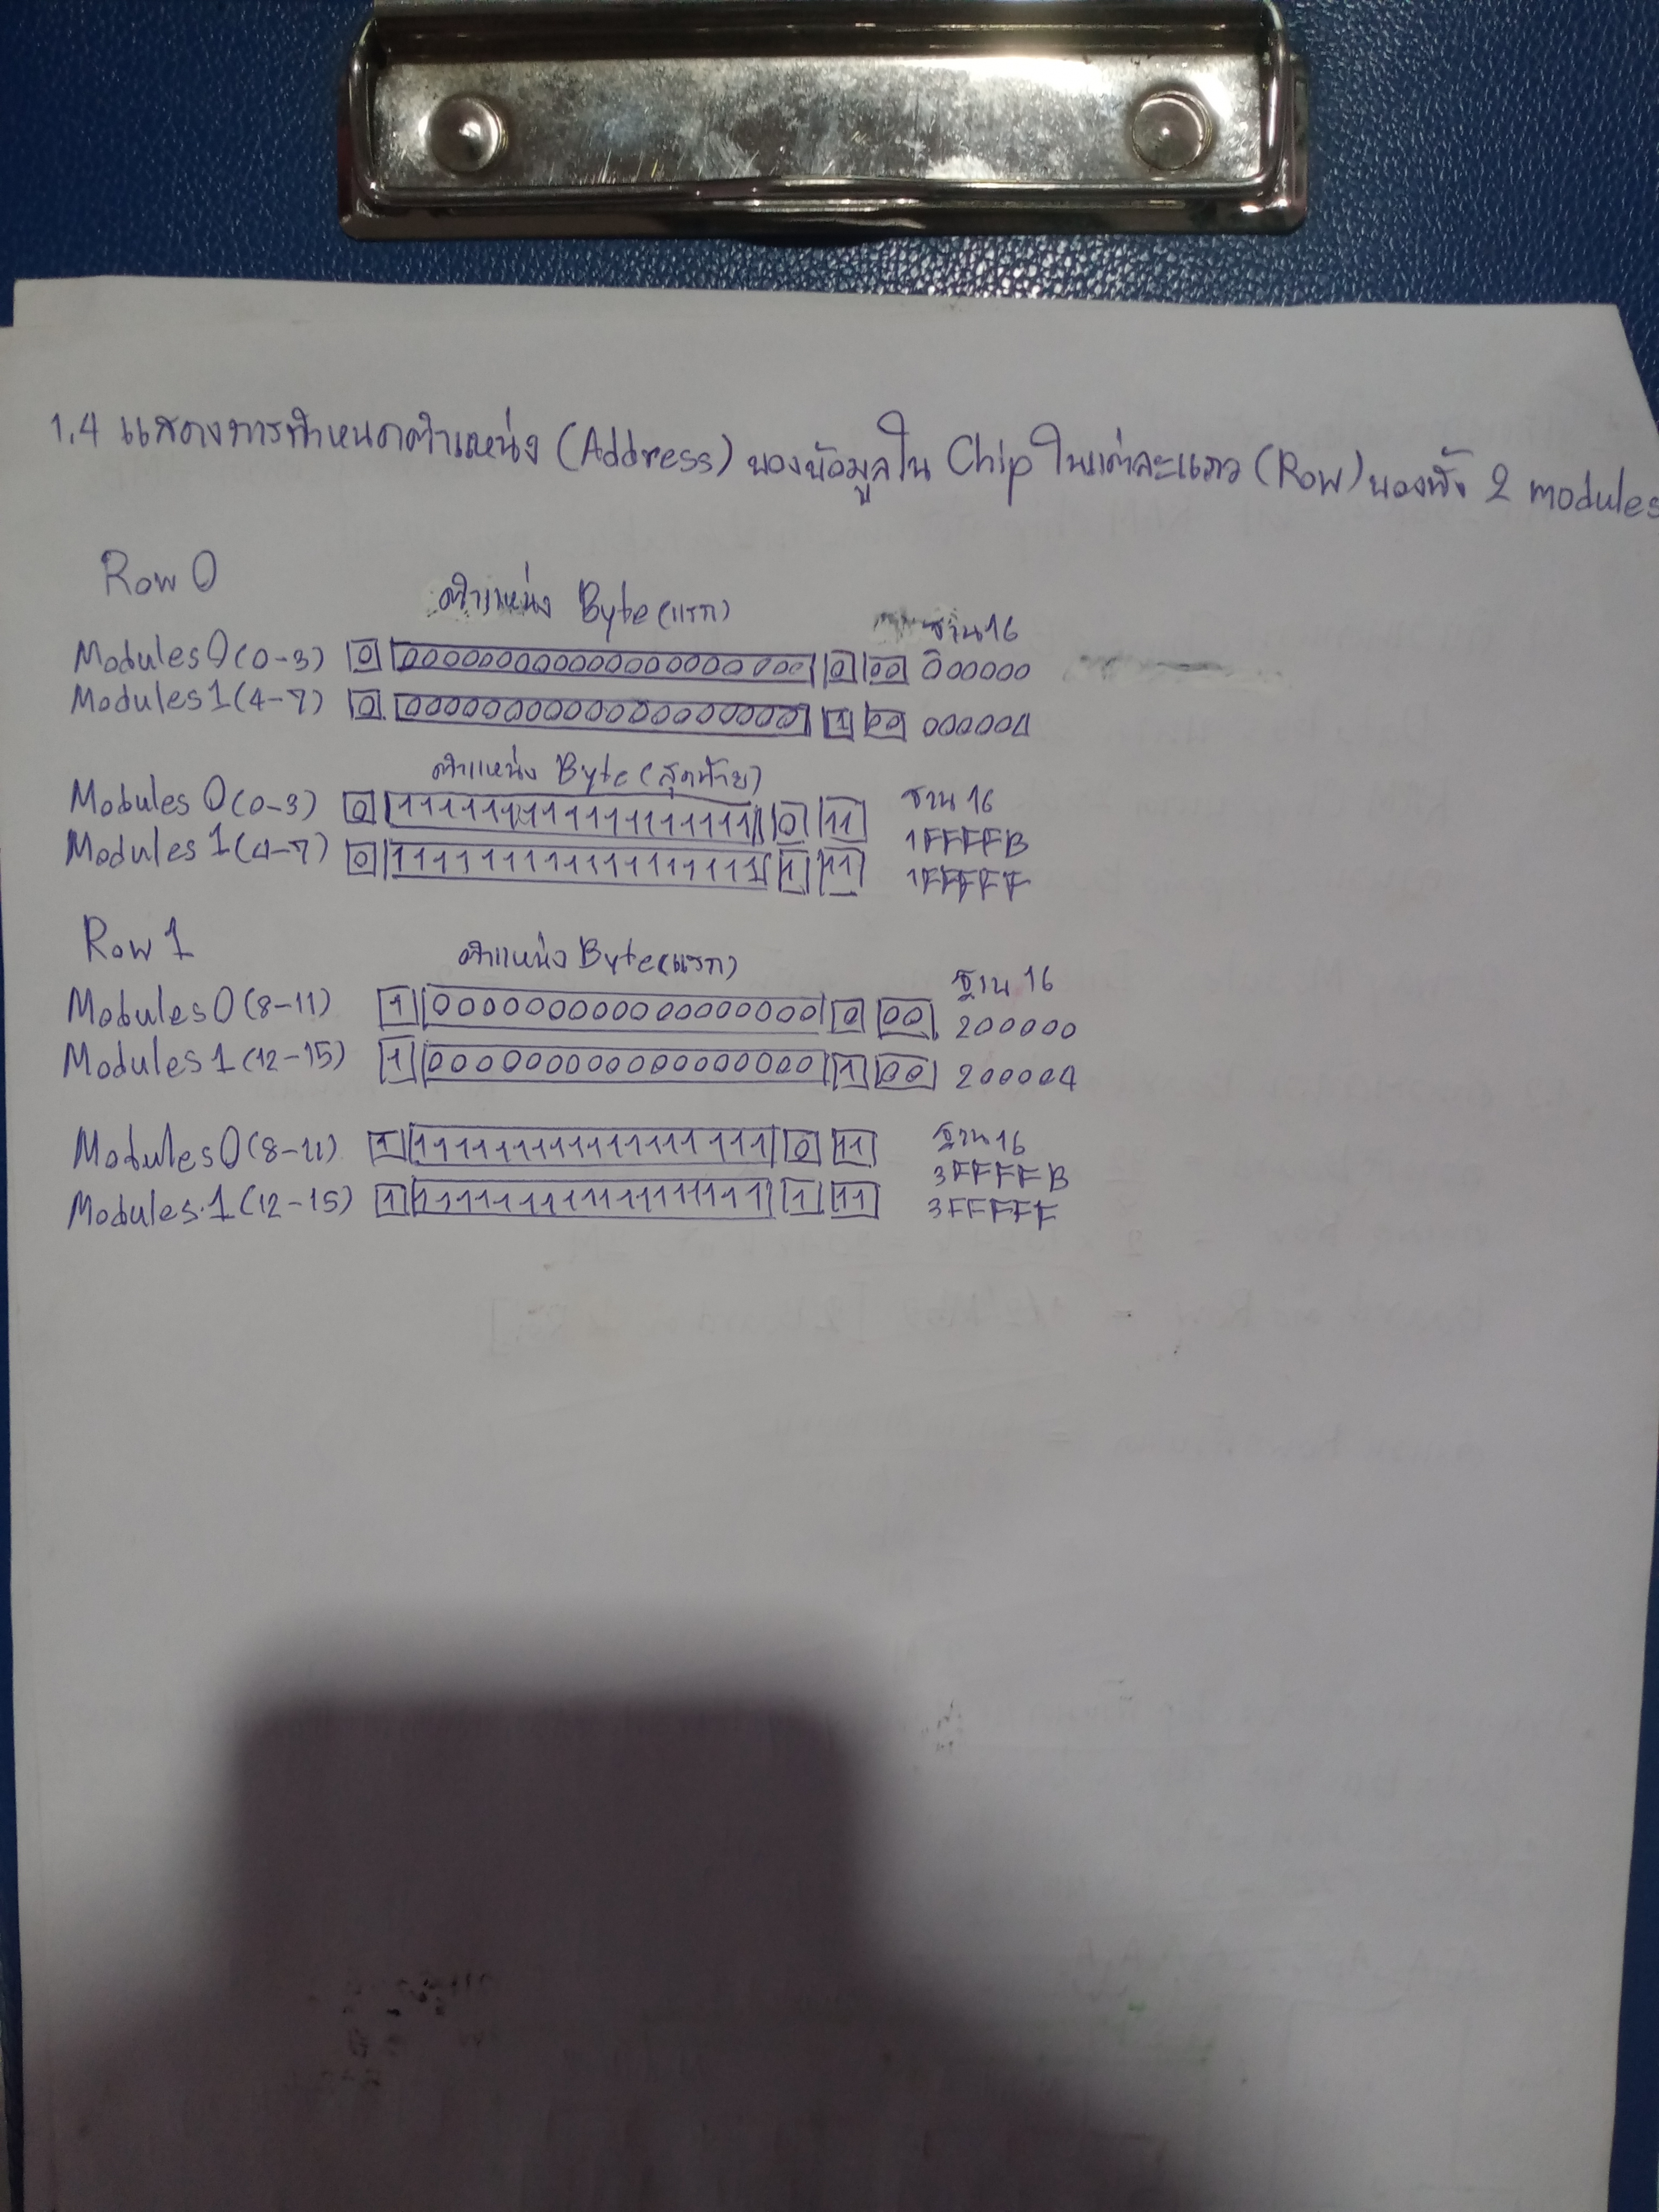 1.4 แสดงการกำหนดตำแหน่ง (Address) ของข้อมูลใน Chip ในแต่ละแถว (Row) ของทั้ง 2 modules
Row 0
ตำแหน่ง Byte (แรก) ฐาน 16
Modules 0 (0-3) 0 000000000000000000 0 00 000000
Modules 1 (4-7) 0 000000000000000000 1 00 000004
ตำแหน่ง Byte (สุดท้าย) ฐาน 16
Modules 0 (0-3) 0 111111111111111111 0 11 1FFFFB
Modules 1 (4-7) 0 111111111111111111 1 11 1FFFFF
Row 1
ตำแหน่ง Byte (แรก) ฐาน 16
Modules 0 (8-11) 1 000000000000000000 0 00 200000
Modules 1 (12-15) 1 000000000000000000 1 00 200004
ฐาน 16
Modules 0 (8-11) 1 111111111111111111 0 11 3FFFFB
Modules 1 (12-15) 1 111111111111111111 1 11 3FFFFF